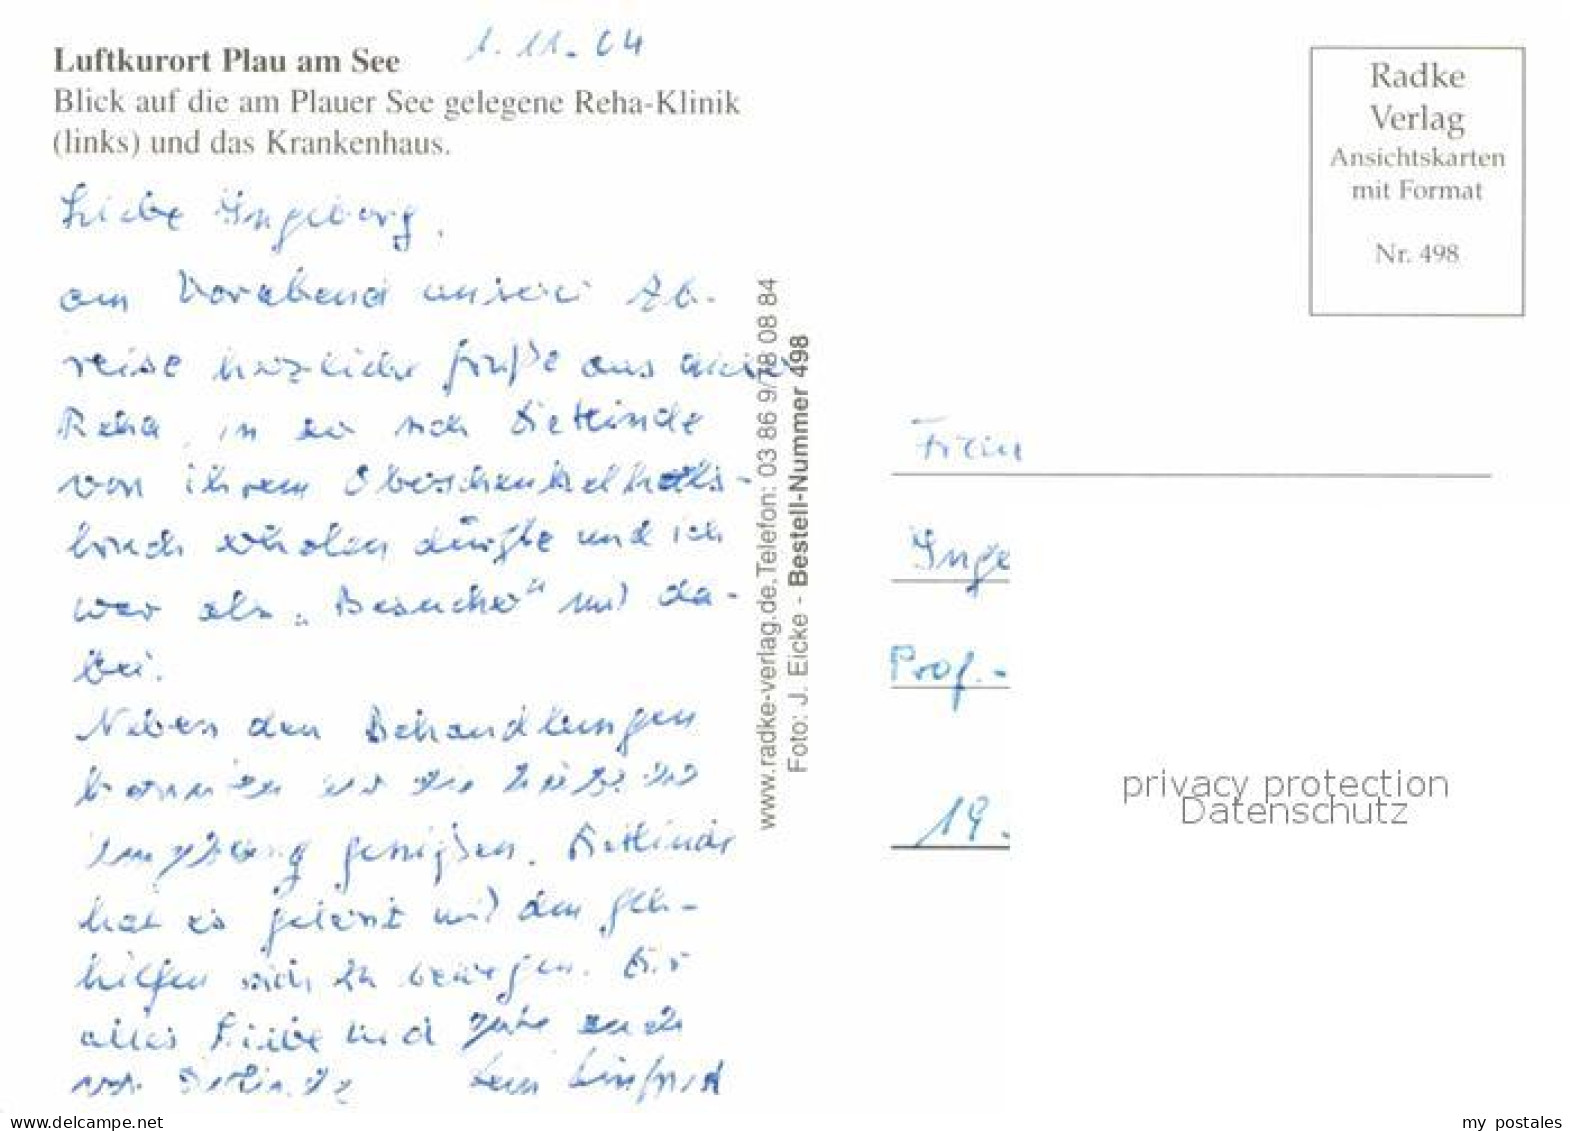 Luftkurort Plau am See
1.11.04
Blick auf die am Plauer See gelegene Reha-Klinik
(links) und das Krankenhaus.
Liebe Ingeborg,
am Vorabend unserer Ab-
reise herzliche Grüße aus der
Reha, in der sich Dietlinde
von ihrem Oberschenkelhals-
bruch erholen dürfte und ich
war als "Besucher" mit da-
bei.
Neben den Behandlungen
konnten wir die
Umgebung genießen. Dietlinde
hat es gelernt mit den Geh-
hilfen sich zu bewegen. Dir
alles Liebe und Gute auch
von Dietlinde Dein
www.radke-verlag.de.Telefon: 03 86 9/78 08 84
Foto: J. Eicke - Bestell-Nummer 498
Radke
Verlag
Ansichtskarten
mit Format
Nr. 498
Frau
Inge
Prof.-
19.
privacy protection
Datenschutz
www.delcampe.net
my_postales